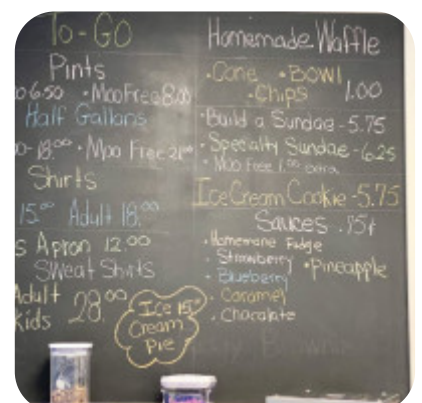 To-Go
Pints
6.50 • Moo Free 8.00
Half Gallons
18.00 • Moo Free 21.00
Shirts
15.00 Adult 18.00
s Apron 12.00
Sweat Shirts
Adult
Kids 28.00
Ice 15.00
Cream
Pie
Homemade Waffle
• Cone • Bowl
• Chips 1.00
• Build a Sundae - 5.75
• Specialty Sundae - 6.25
• Moo Free 1.00 extra
Ice Cream Cookie - 5.75
Sauces .75¢
• Homemade Fudge
• Strawberry
• Pineapple
• Blueberry
• Caramel
• Chocolate